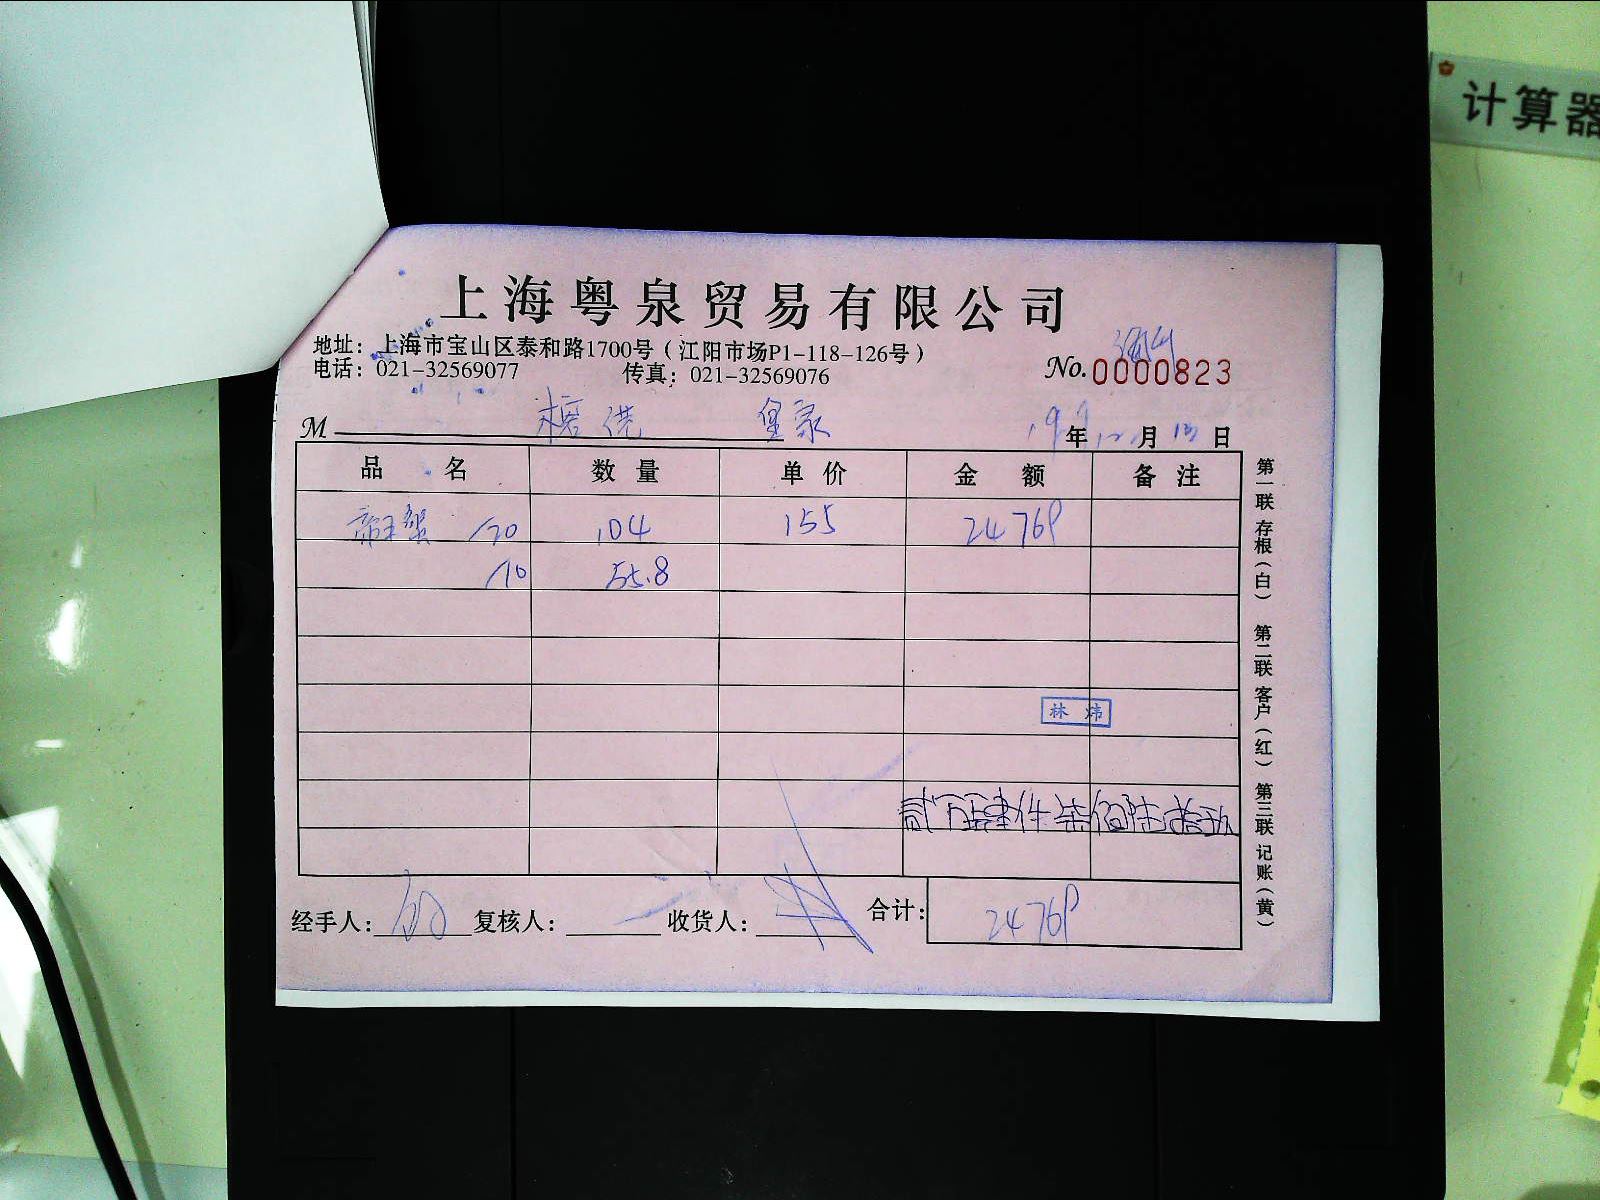 计算器
上海粤泉贸易有限公司
地址：上海市宝山区泰和路1700号（江阳市场P1-118-126号）
电话：021-32569077 传真：021-32569076
No.0000823
M 皇家 19年12月13日
品名 数量 单价 金额 备注
帝王蟹 /20 104 155 24769
/10 55.8
林炜
贰万肆仟柒佰陆拾玖
经手人： 复核人： 收货人： 合计： 24769
第一联 存根（白） 第二联 客户（红） 第三联 记账（黄）